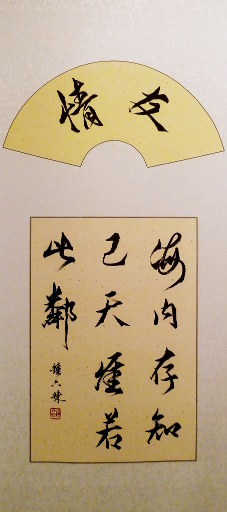 友情
海内存知
己天涯若
比鄰